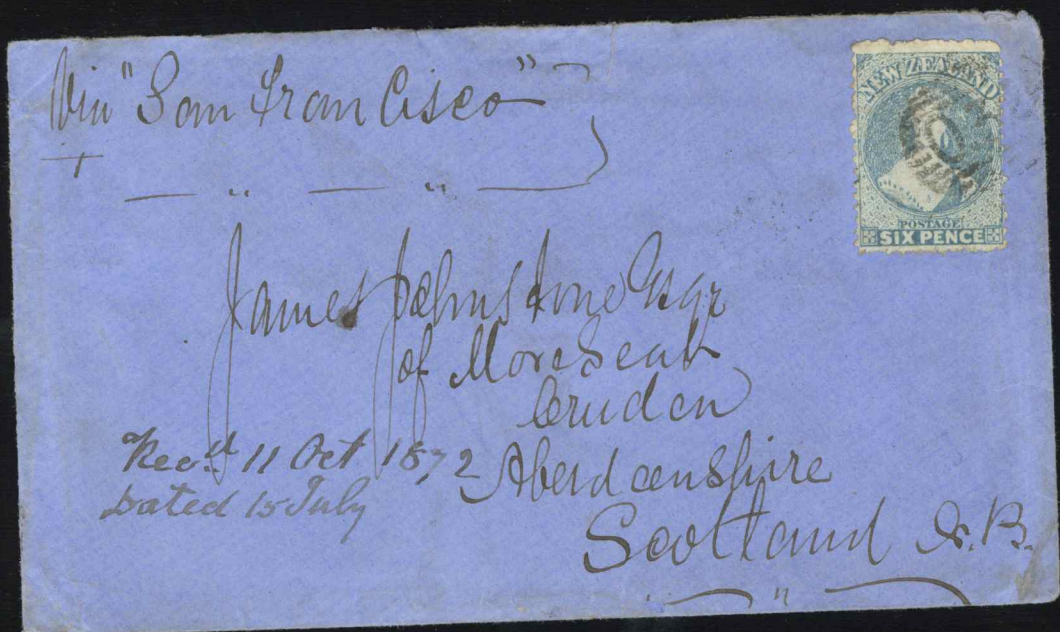 Via "San Francisco"
NEW ZEALAND
POSTAGE
SIX PENCE
James Johnstone Esqr
of Moreseat
Cruden
Aberdeenshire
Scotland N.B.
Recd 11 Oct 1872
Dated 15 July